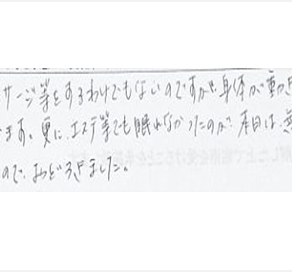 サージ等をするわけでもないのですが、身体が重
ます。更に、エステ等でも眠れなかったのが、本日は、
ので、おどろきました。